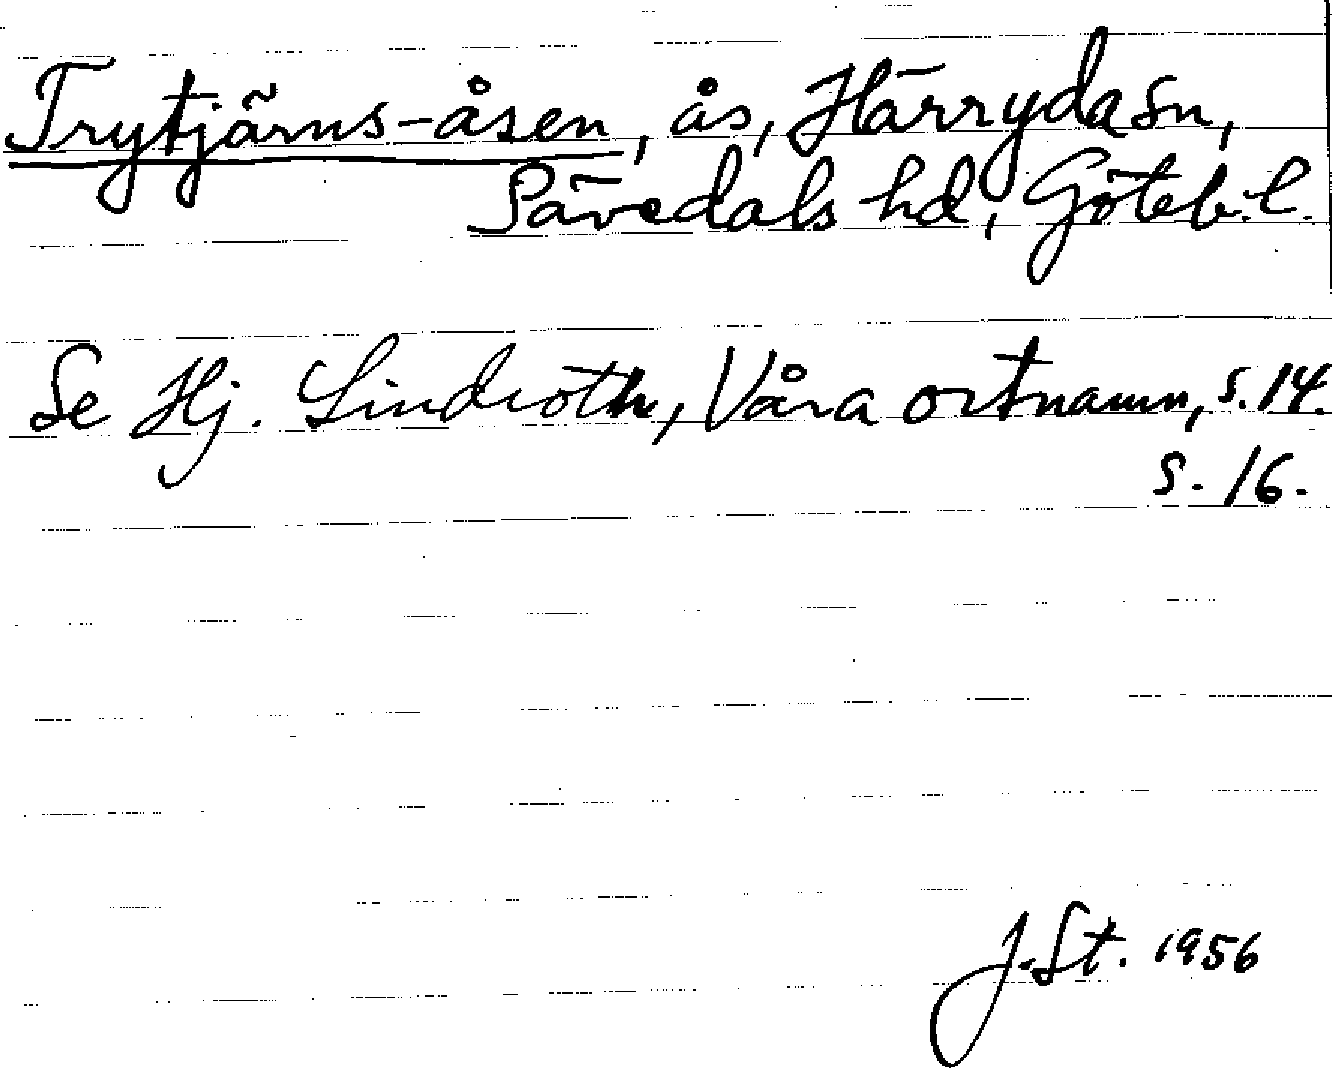 Trytjärns-åsen, ås, Härryda sn,
Sävedals hd, Göteb. l.
Se Hj. Lindroth, Våra ortnamn, s. 14.
s. 16.
J. St. 1956